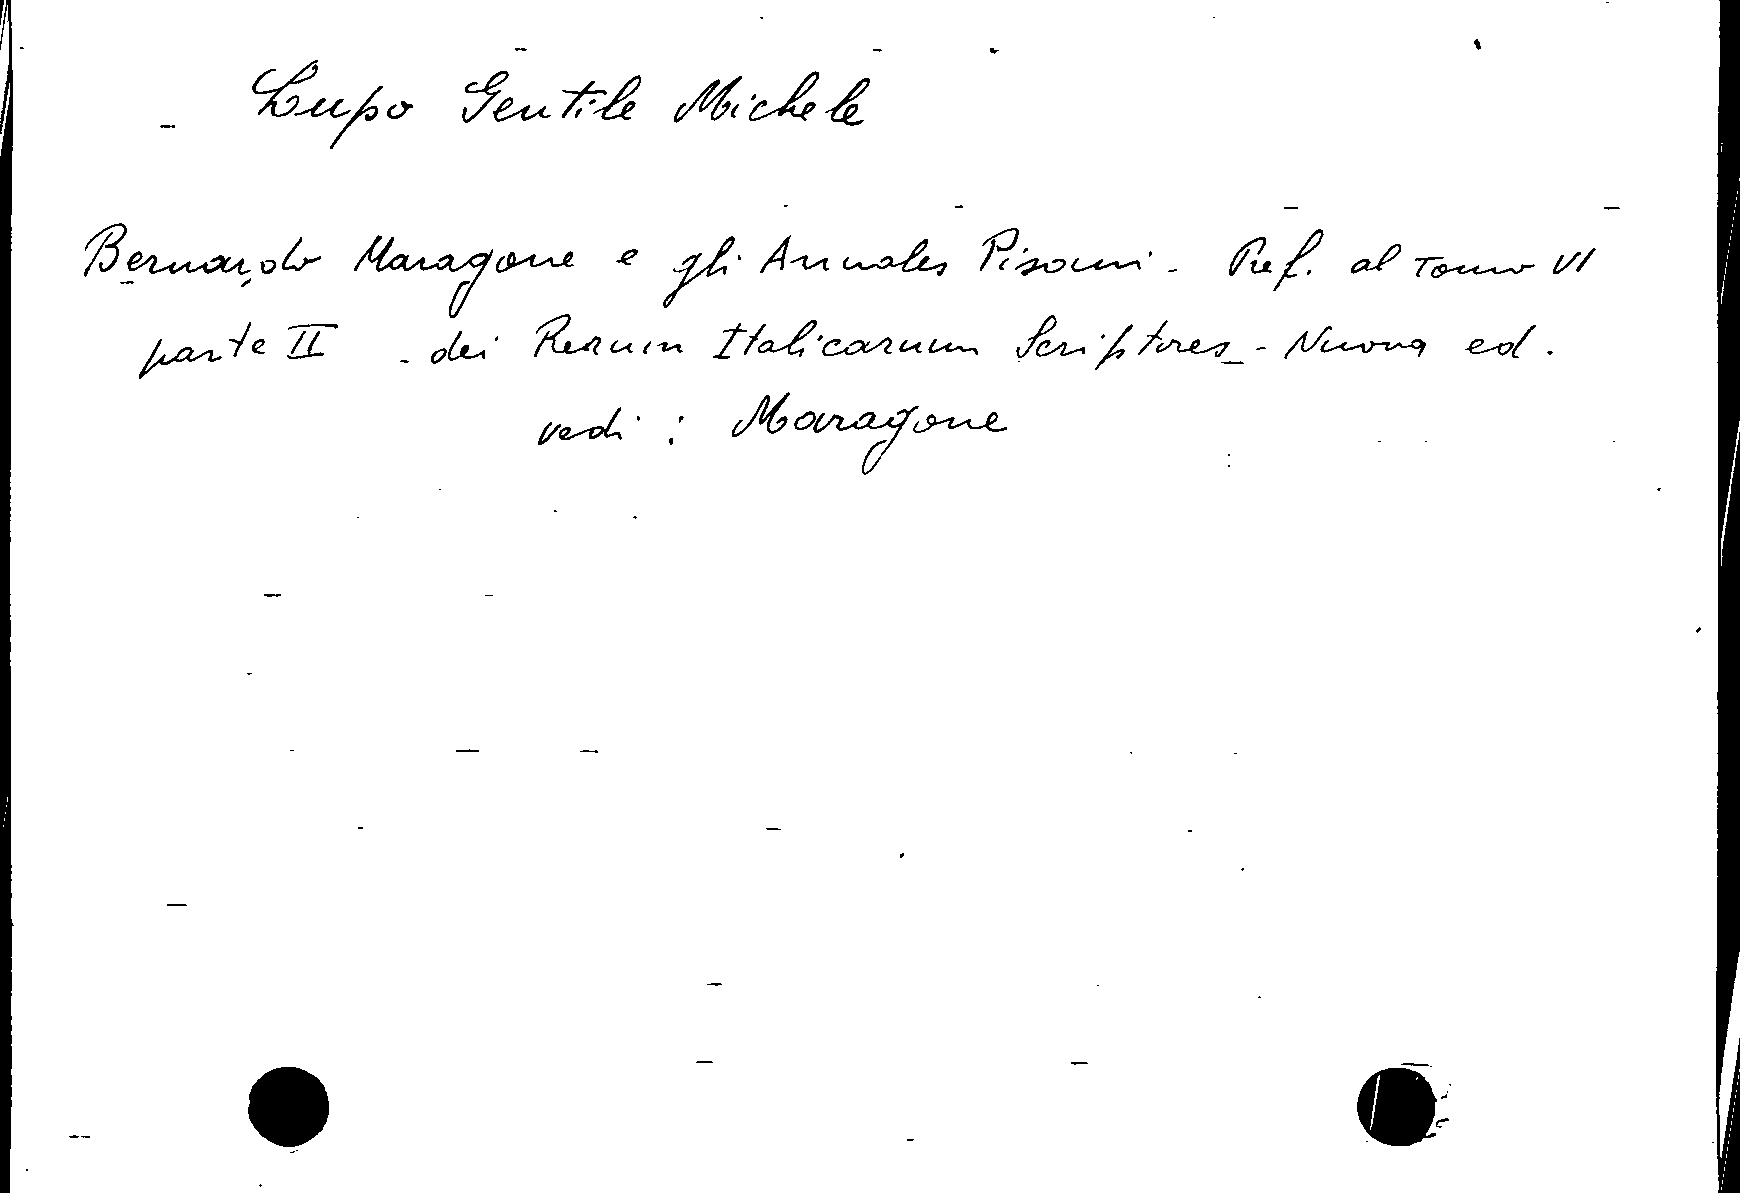 Lupo Gentile Michele
Bernardo Maragone e gli Annales Pisani - Pref. al Tomo VI
parte II - dei Rerum Italicarum Scriptores - Nuova ed.
vedi : Maragone